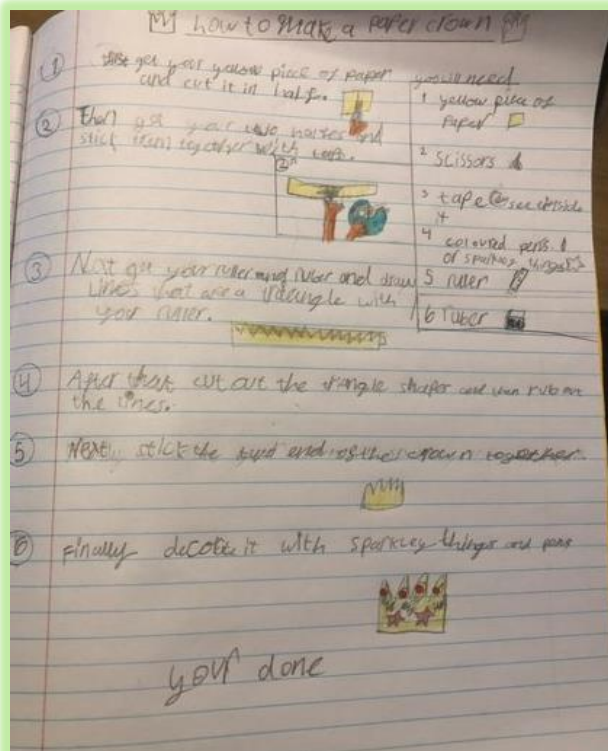 how to make a paper crown
1 first get your yellow piece of paper
and cut it in half.
2 then get your two halves and
stick them together with
3 Next get your ruler and ruber and draw
lines that are a triangle with
your ruler.
4 After that cut out the triangle shapes and then rub out
the lines.
5 Next, stick the end of the crown together.
6 Finally decorate it with sparkley things and pens
your done
you will need
1 yellow piece of
paper
2 scissors
3 tape
it
4 coloured pens
or sparkley things
5 ruler
6 ruber